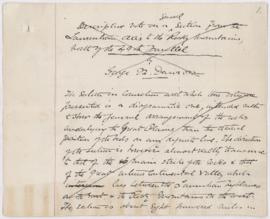 1.
Descriptive note on a General Section from the
Laurentian Axis to the Rocky Mountains
north of the 49th Parallel
by
George M. Dawson
The Section in connection with which this
presented is a diagrammatic one, intended
to show the general arrangement of the rocks
underlying the Great Plains, than the actual
of the beds on any separate line. The direction
of the Section is however almost exactly transverse
to that of the main strike of the rocks & that
of the great interior Continental Valley which
lies between the Laurentian highlands
& the Rocky Mountains to the west.
The Section is about Eight hundred miles in